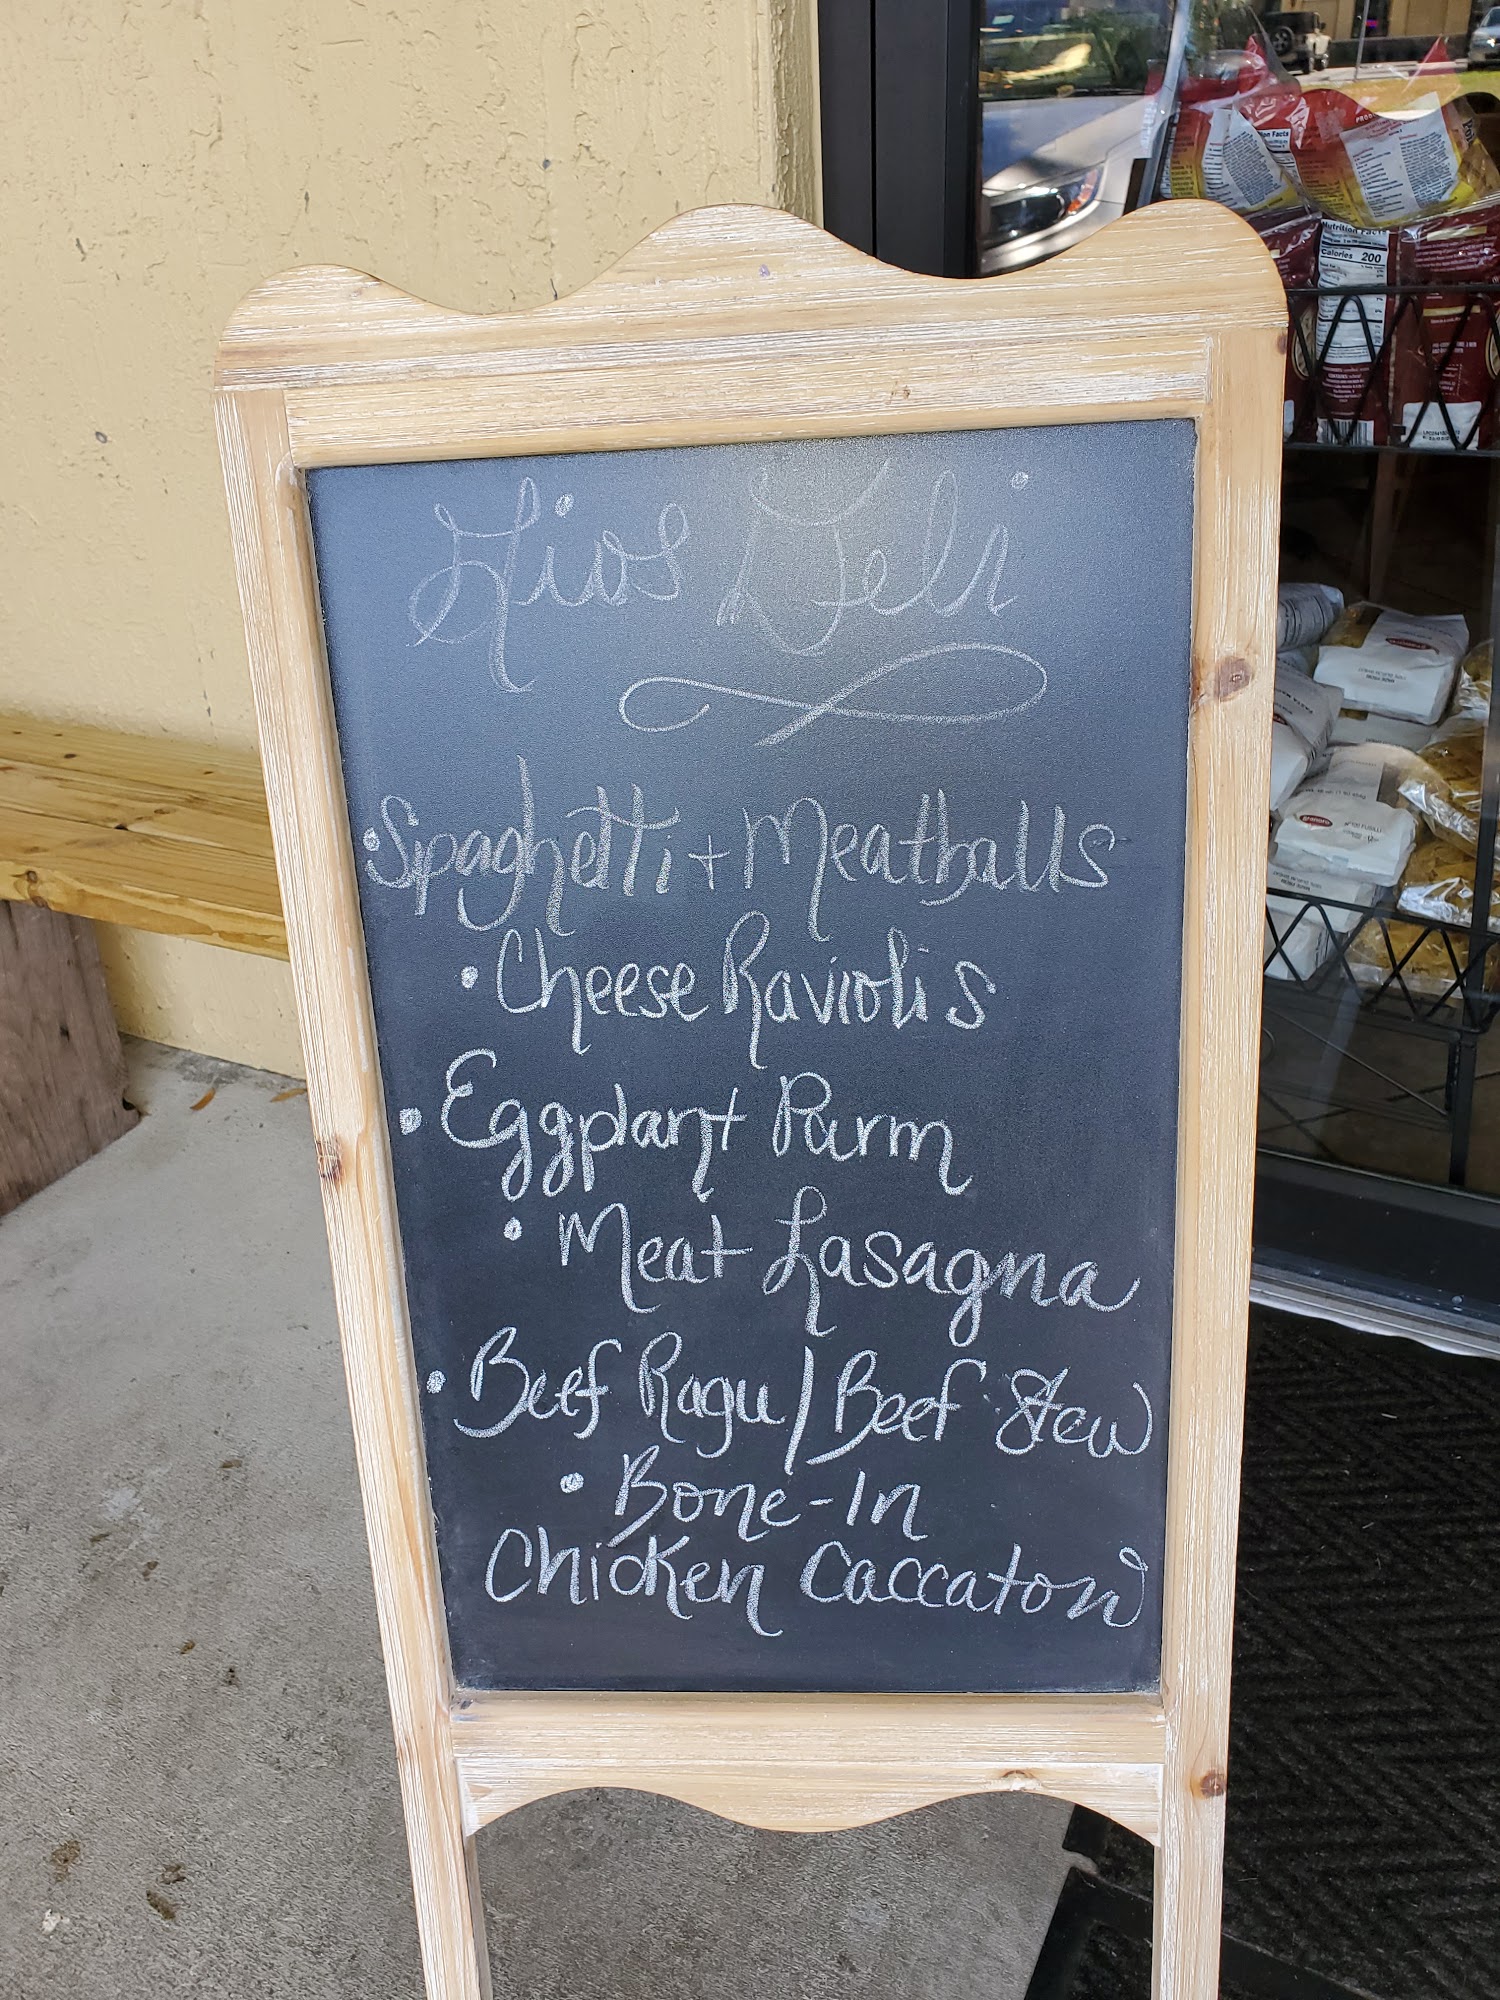 Gios Deli
• Spaghetti + Meatballs
• Cheese Raviolis
• Eggplant Parm
• Meat Lasagna
• Beef Ragu / Beef Stew
• Bone-In
Chicken Caccatori
Nutrition Facts
Calories 200